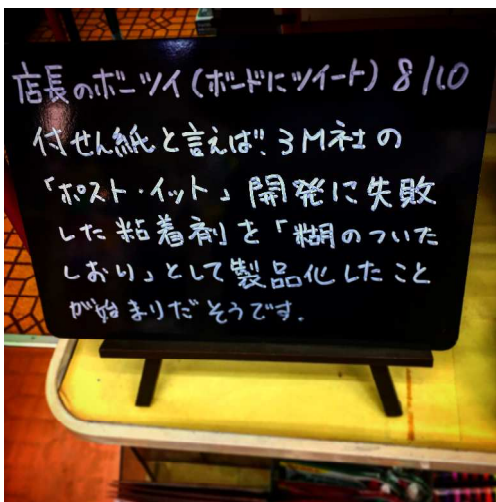 店長のボーツイ(ボードにツイート) 8/10
付せん紙と言えば、3M社の
「ポスト・イット」開発に失敗
した粘着剤を「糊のついた
しおり」として製品化したこと
が始まりだそうです.